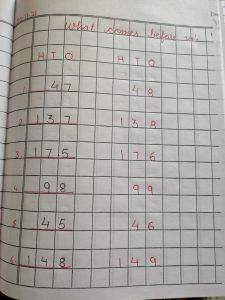 What comes before
H T O H T O
1. 47 48
2. 137 138
3. 175 176
4. 98 99
5. 45 46
6. 148 149